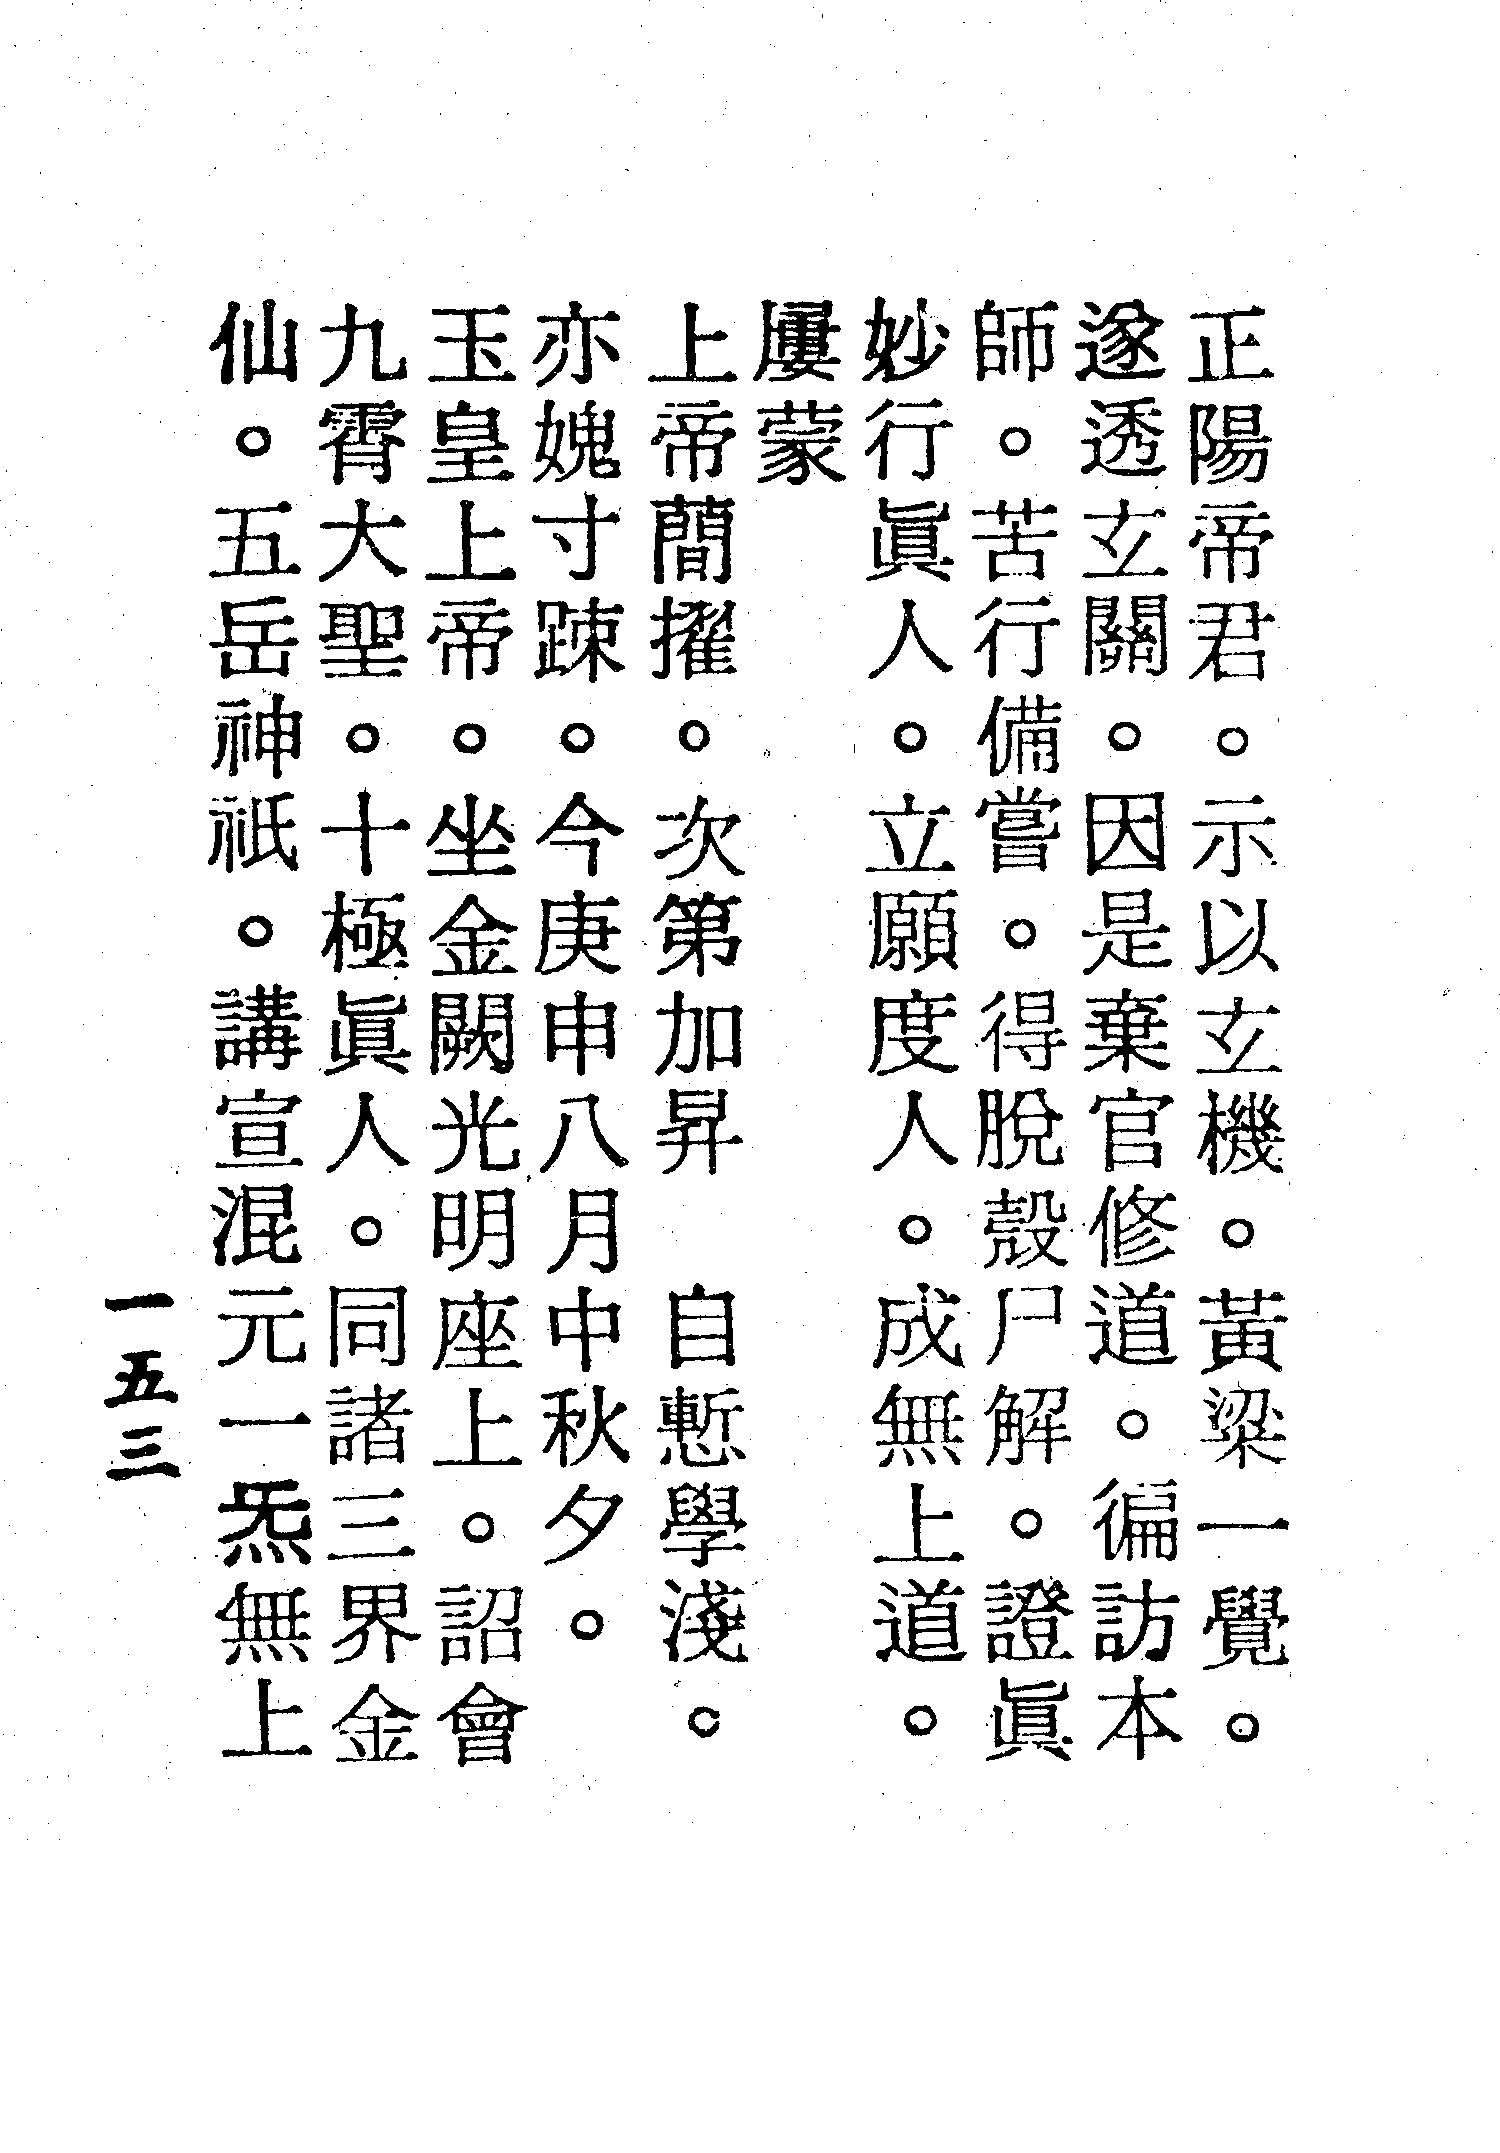 正陽帝君。示以玄機。黃粱一覺。
遂透玄關。因是棄官修道。徧訪本
師。苦行備嘗。得脫殼尸解。證眞
妙行眞人。立願度人。成無上道。
屢蒙
上帝蕳擢。次第加昇　自慙學淺。
亦媿寸踈。今庚申八月中秋夕。
玉皇上帝。坐金闕光明座上。詔會
九霄大聖。十極眞人。同諸三界金
仙。五岳神祇。講宣混元一炁無上
一五三